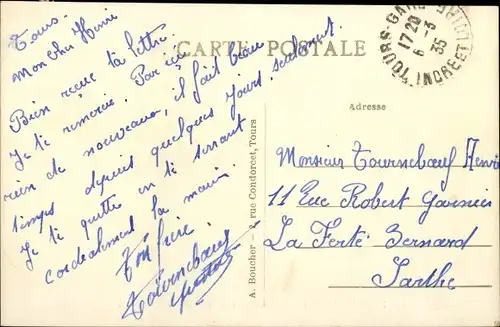 CARTE POSTALE
Tours.
Mon cher Henri
Bien reçue ta lettre.
Je te remercie. Par ici
rien de nouveau, il fait beau
temps depuis quelques jours seulement.
Je te quitte en te serrant
cordialement la main.
Ton frère
Tournebœuf
A. Boucher - rue Condorcet, Tours
TOURS-GARE
17 20
6 -3
35
INDRE ET LOIRE
Adresse
Monsieur Tournebœuf Henri
11 Rue Robert Garnier
La Ferté Bernard
Sarthe